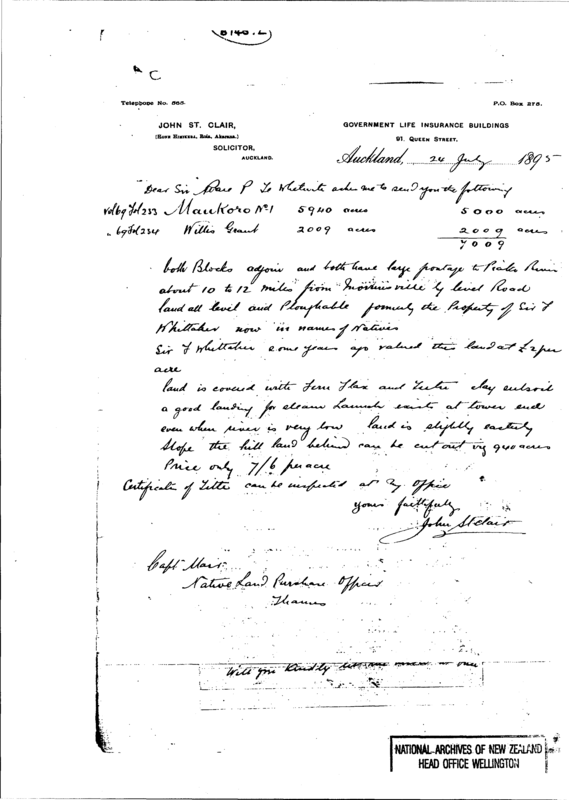 B 140. L
C
Telephone No. 565.
P.O. Box 275.
JOHN ST. CLAIR,
SOLICITOR,
AUCKLAND.
GOVERNMENT LIFE INSURANCE BUILDINGS
91, QUEEN STREET,
Auckland, 24 July 1895
Dear Sir P Te Whetuiti asks me to send you the following
Vol 69 Fol 233 Maukoro No 1 5940 acres 5000 acres
" 69 Fol 234 Willis Grant 2009 acres 2009 acres
7009
both Blocks adjoin and both have large frontage to Piako River
about 10 to 12 miles from Morrinsville by level Road
land all level and Ploughable formerly the Property of Sir F
Whittaker now in names of Natives
Sir F Whittaker some years ago valued this land at £2 per
acre
land is covered with Fern Flax and clay subsoil
a good landing for steam Launch exists at lower end
even when river is very low land is slightly easterly
slope the hill land behind can be cut out viz 940 acres
Price only 7/6 per acre
Certificates of Title can be inspected at my office
yours faithfully
John St Clair
Capt Mair
Native Land Purchase Officer
Thames
Will you kindly
NATIONAL ARCHIVES OF NEW ZEALAND
HEAD OFFICE WELLINGTON